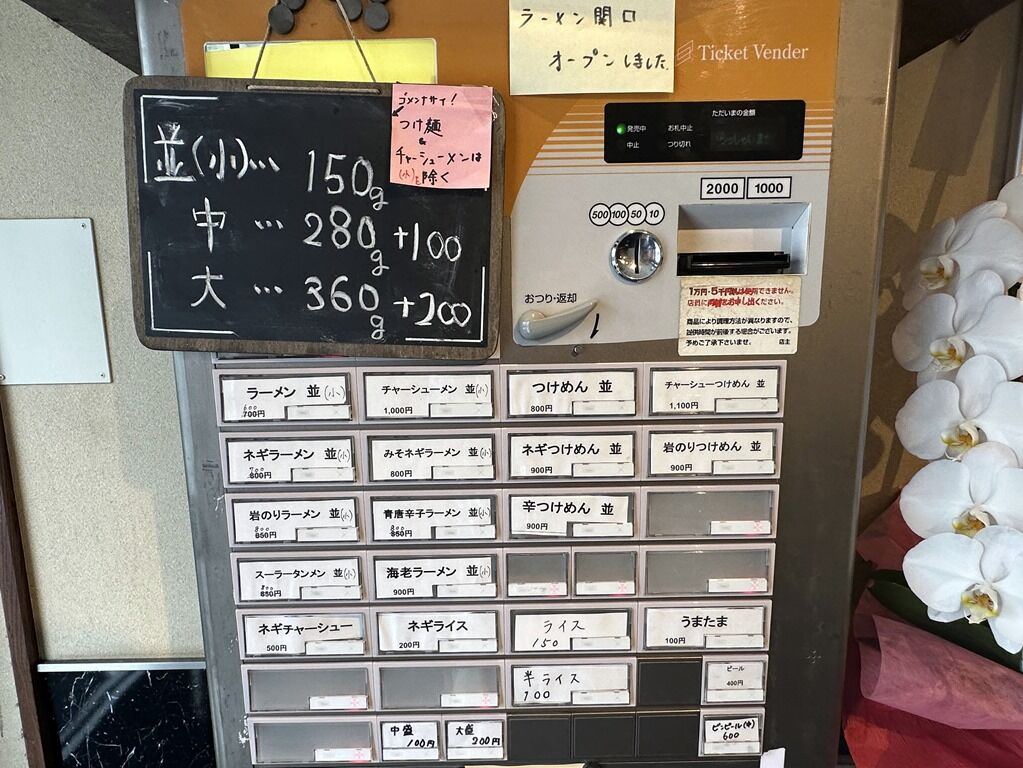 ラーメン関口
オープンしました
Ticket Vender
ゴメンナサイ!
つけ麺
&
チャーシューメンは
(小)を除く
並(小)… 150g
中 … 280g +100
大 … 360g +200
ただいまの金額
発売中 お札中止
中止 つり切れ
2000 1000
500 100 50 10
おつり・返却
1万円・5千円札は使用できません。
店員に両替をお申し出ください。
商品により調理方法が異なりますので、
提供時間が前後する場合がございます。
予めご了承下さいませ。 店主
ラーメン 並(小)
600
700円
チャーシューメン 並(小)
1,000円
つけめん 並
800円
チャーシューつけめん 並
1,100円
ネギラーメン 並(小)
700
800円
みそネギラーメン 並(小)
800円
ネギつけめん 並
900円
岩のりつけめん 並
900円
岩のりラーメン 並(小)
800
850円
青唐辛子ラーメン 並(小)
800
850円
辛つけめん 並
900円
スーラータンメン 並(小)
800
850円
海老ラーメン 並(小)
900円
ネギチャーシュー
500円
ネギライス
200円
ライス
150
うまたま
100円
半ライス
100
ビール
400円
中盛
100円
大盛
200円
ビンビール(中)
600